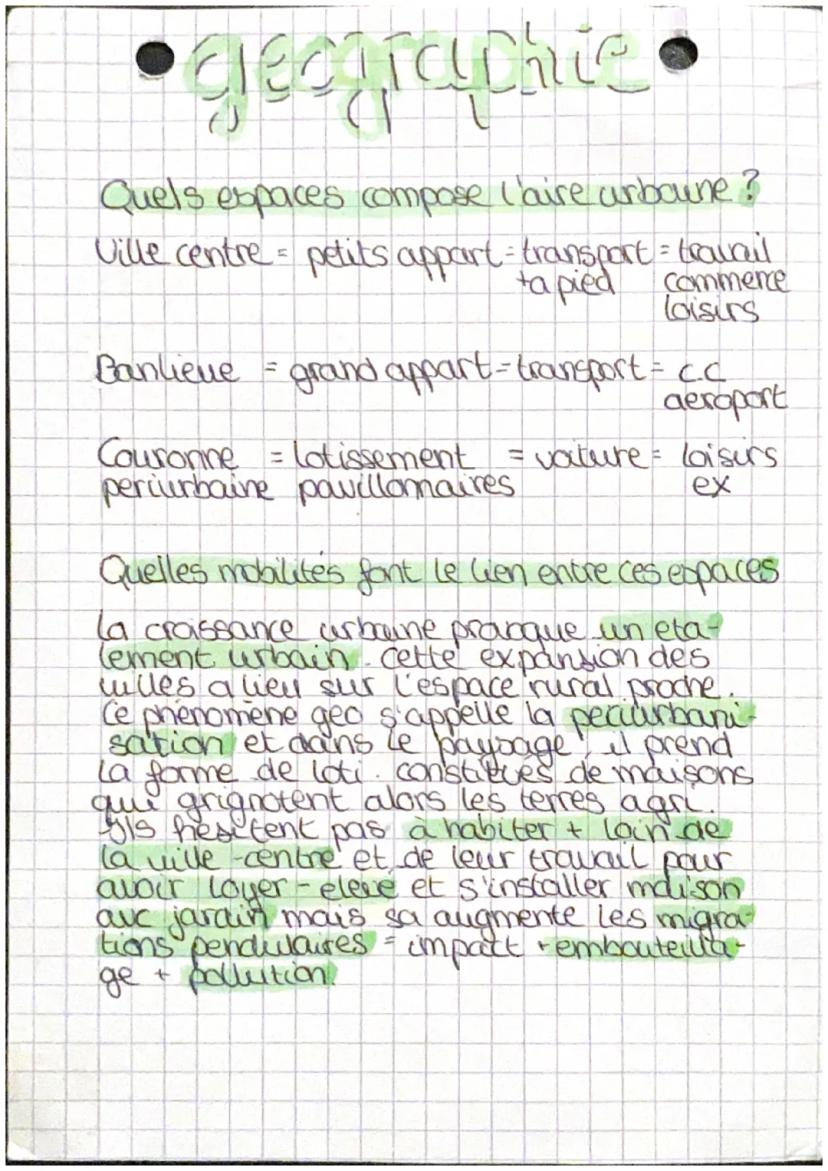 geographie
Quels espaces compose l'aire urbaine ?
Ville centre = petits appart = transport = travail
+a pied commerce
loisirs
Banlieue = grand appart = transport = c.c
aeroport
Couronne = lotissement = voiture = loisirs
periurbaine pavillonnaires ex
Quelles mobilités font le lien entre ces espaces
La croissance urbaine provoque un éta-
lement urbain. Cette expansion des
villes a lieu sur l'espace rural proche.
Ce phénomène géo s'appelle la periurbani-
sation et dans le paysage, il prend
la forme de loti. constitués de maisons
qui grignotent alors les terres agri.
Ils hésitent pas à habiter + loin de
la ville-centre et de leur travail pour
avoir loyer - élevé et s'installer maison
avc jardin mais sa augmente les migra-
tions pendulaires = impact + embouteilla-
ge + pollution.